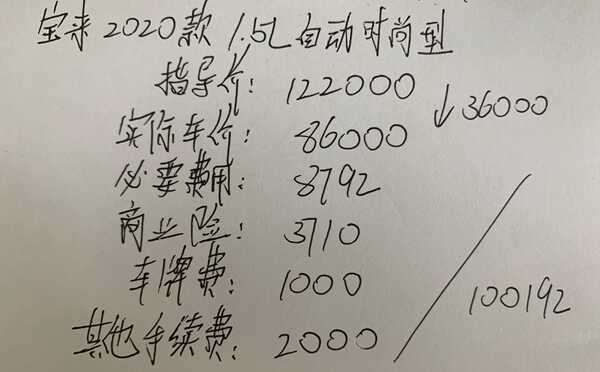 宝来2020款 1.5L自动时尚型
指导价: 122000
↓36000
实际车价: 86000
必要费用: 8792
商业险: 3710
车牌费: 1000
100192
其他手续费: 2000